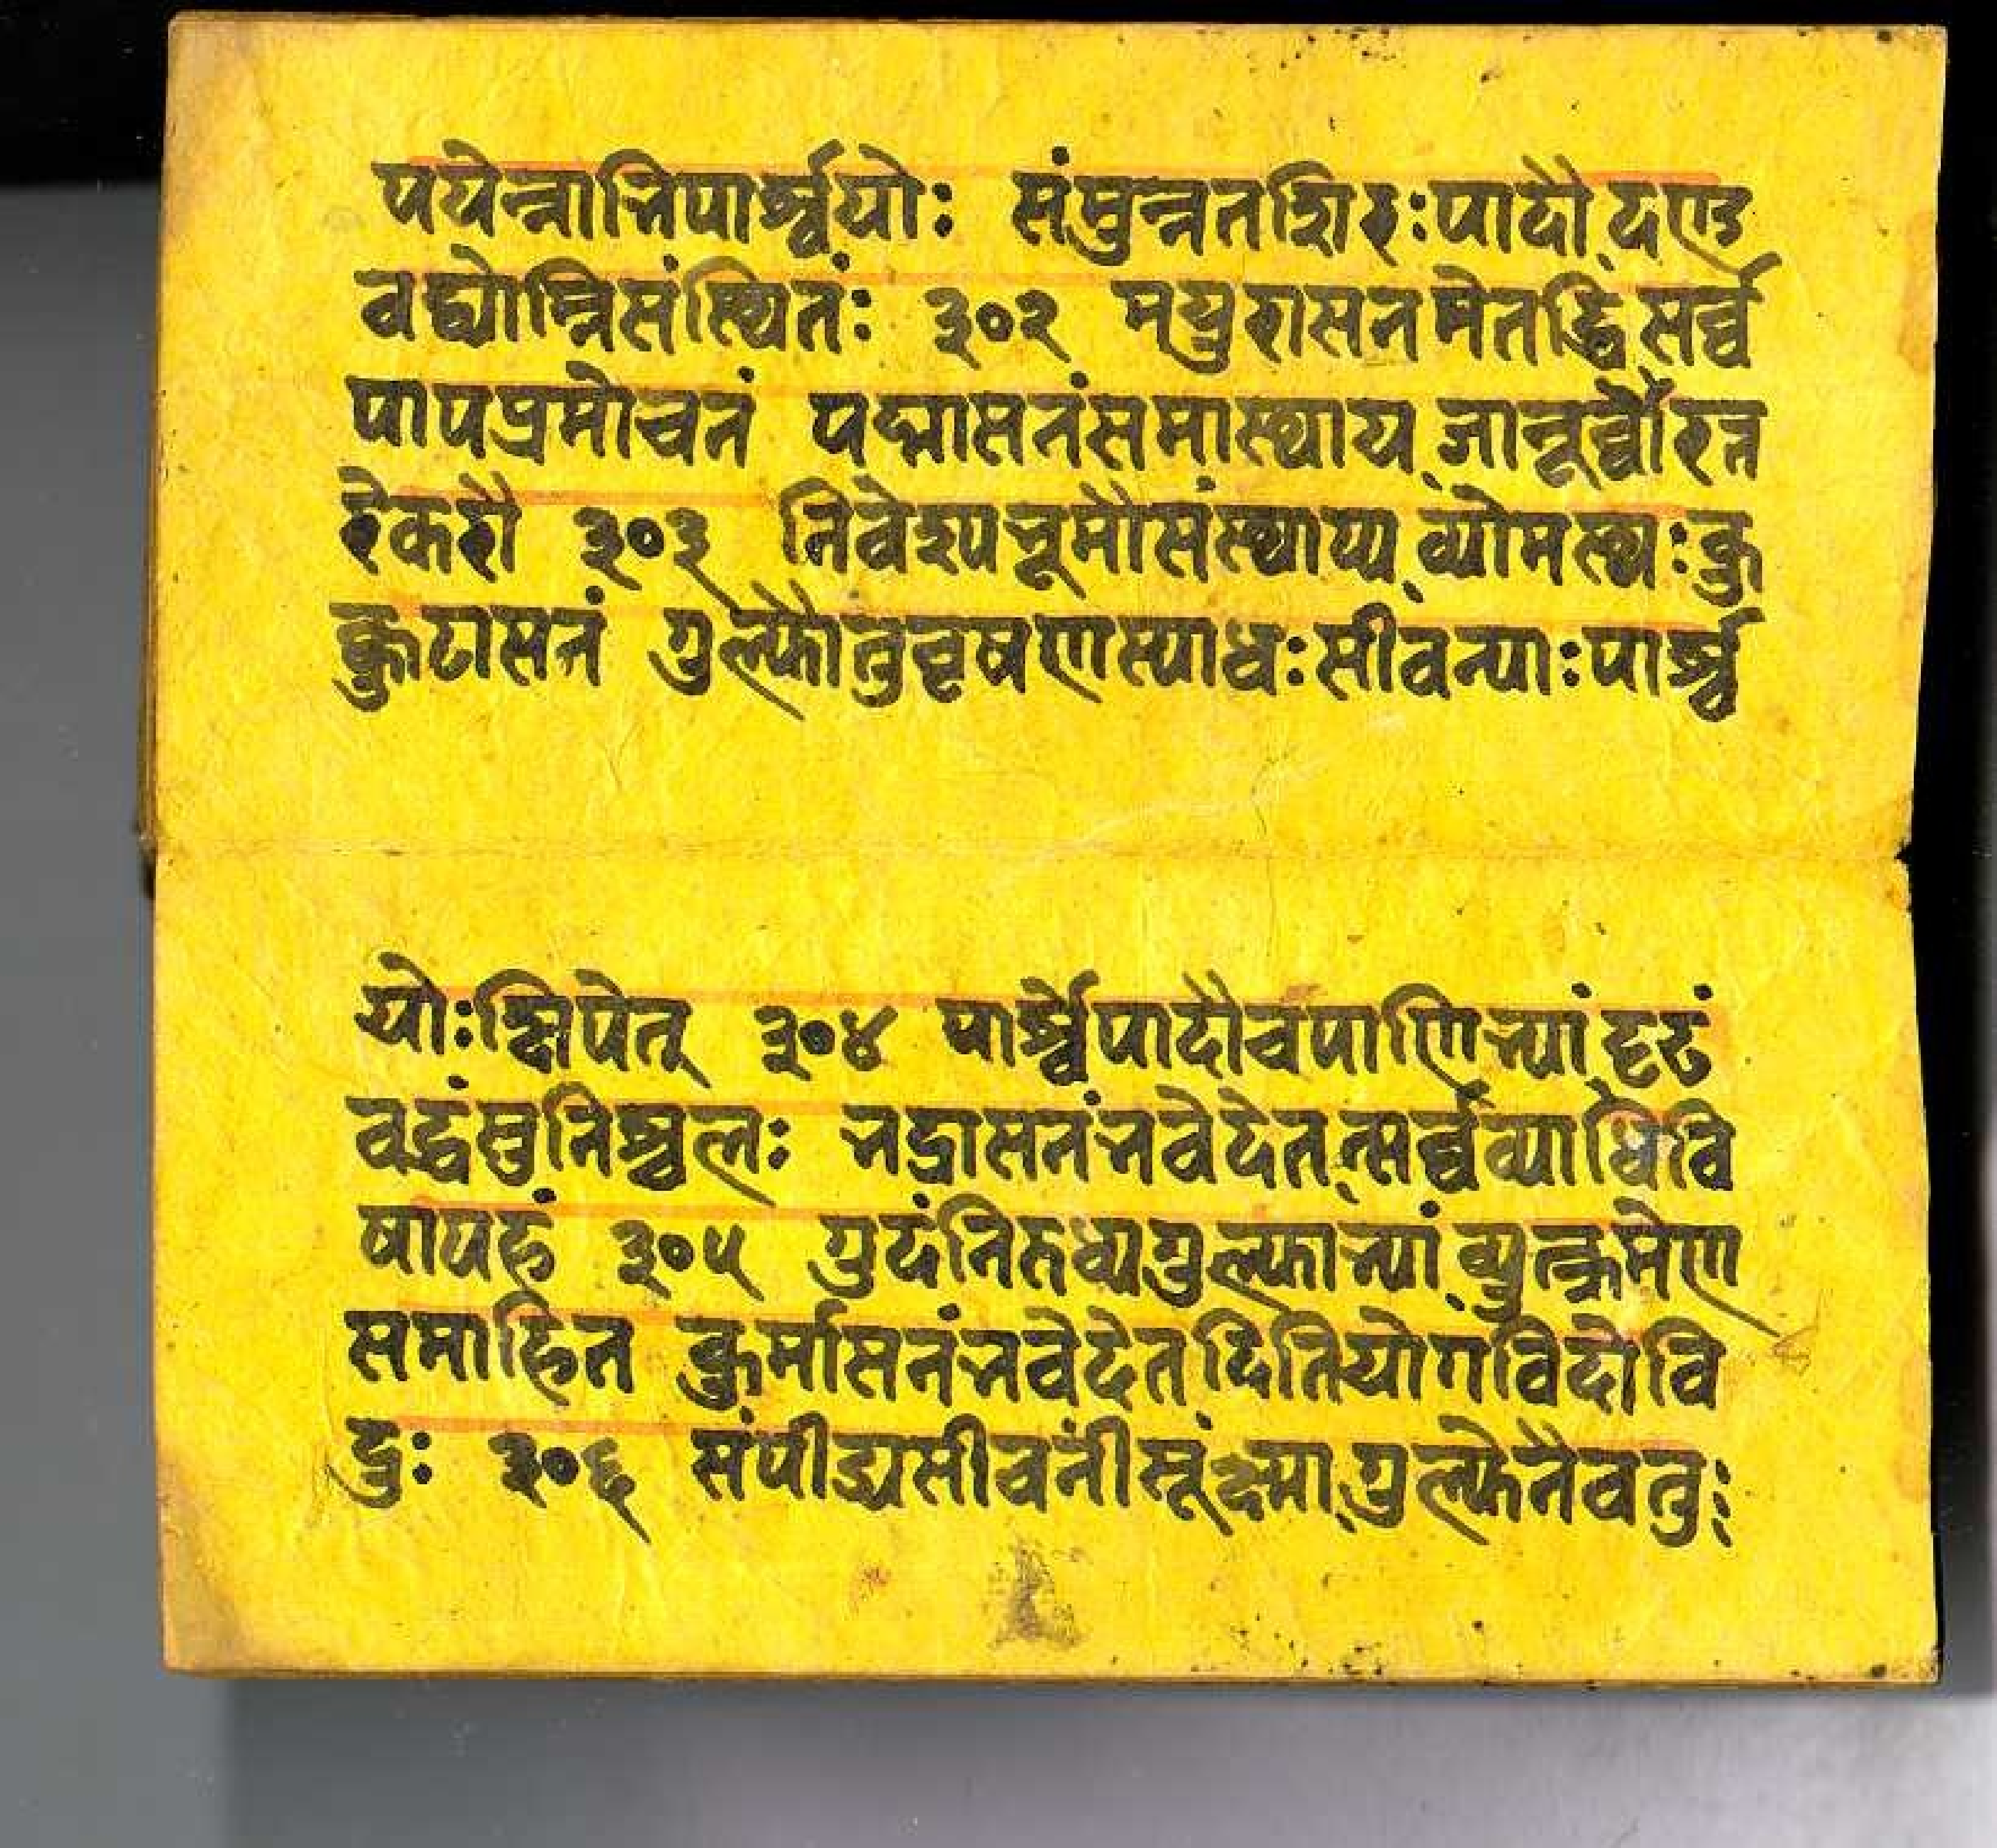 पयेन्नाभिपार्श्वयोः संमुन्नतशिरःपादौ दण्ड
वद्योम्निसंस्थितः ३०२ मयुरासनमेतद्धि सर्व्व
पापप्रमोचनं पद्मासनंसमास्थाय जानूर्व्वोरन्त
रेकरौ ३०३ निवेश्यभूमौसंस्थाप्य व्योमस्थःकु
क्कुटासनं गुल्फौतुवृषणस्याधःसीवन्याःपार्श्व
योःक्षिपेत् ३०४ पार्श्वेपादौचपाणिभ्यां दृढं
वद्धंसुनिश्चलः भद्रासनंभवेदेतत्सर्व्वव्याधिवि
षापहं ३०५ गुदंनिरुध्यगुल्फाभ्यां व्युत्क्रमेण
समाहित कुर्मासनंभवेदेतदितियोगविदोवि
दुः ३०६ संपीड्यसीवनींसूक्ष्मा गुल्फेनैवतु